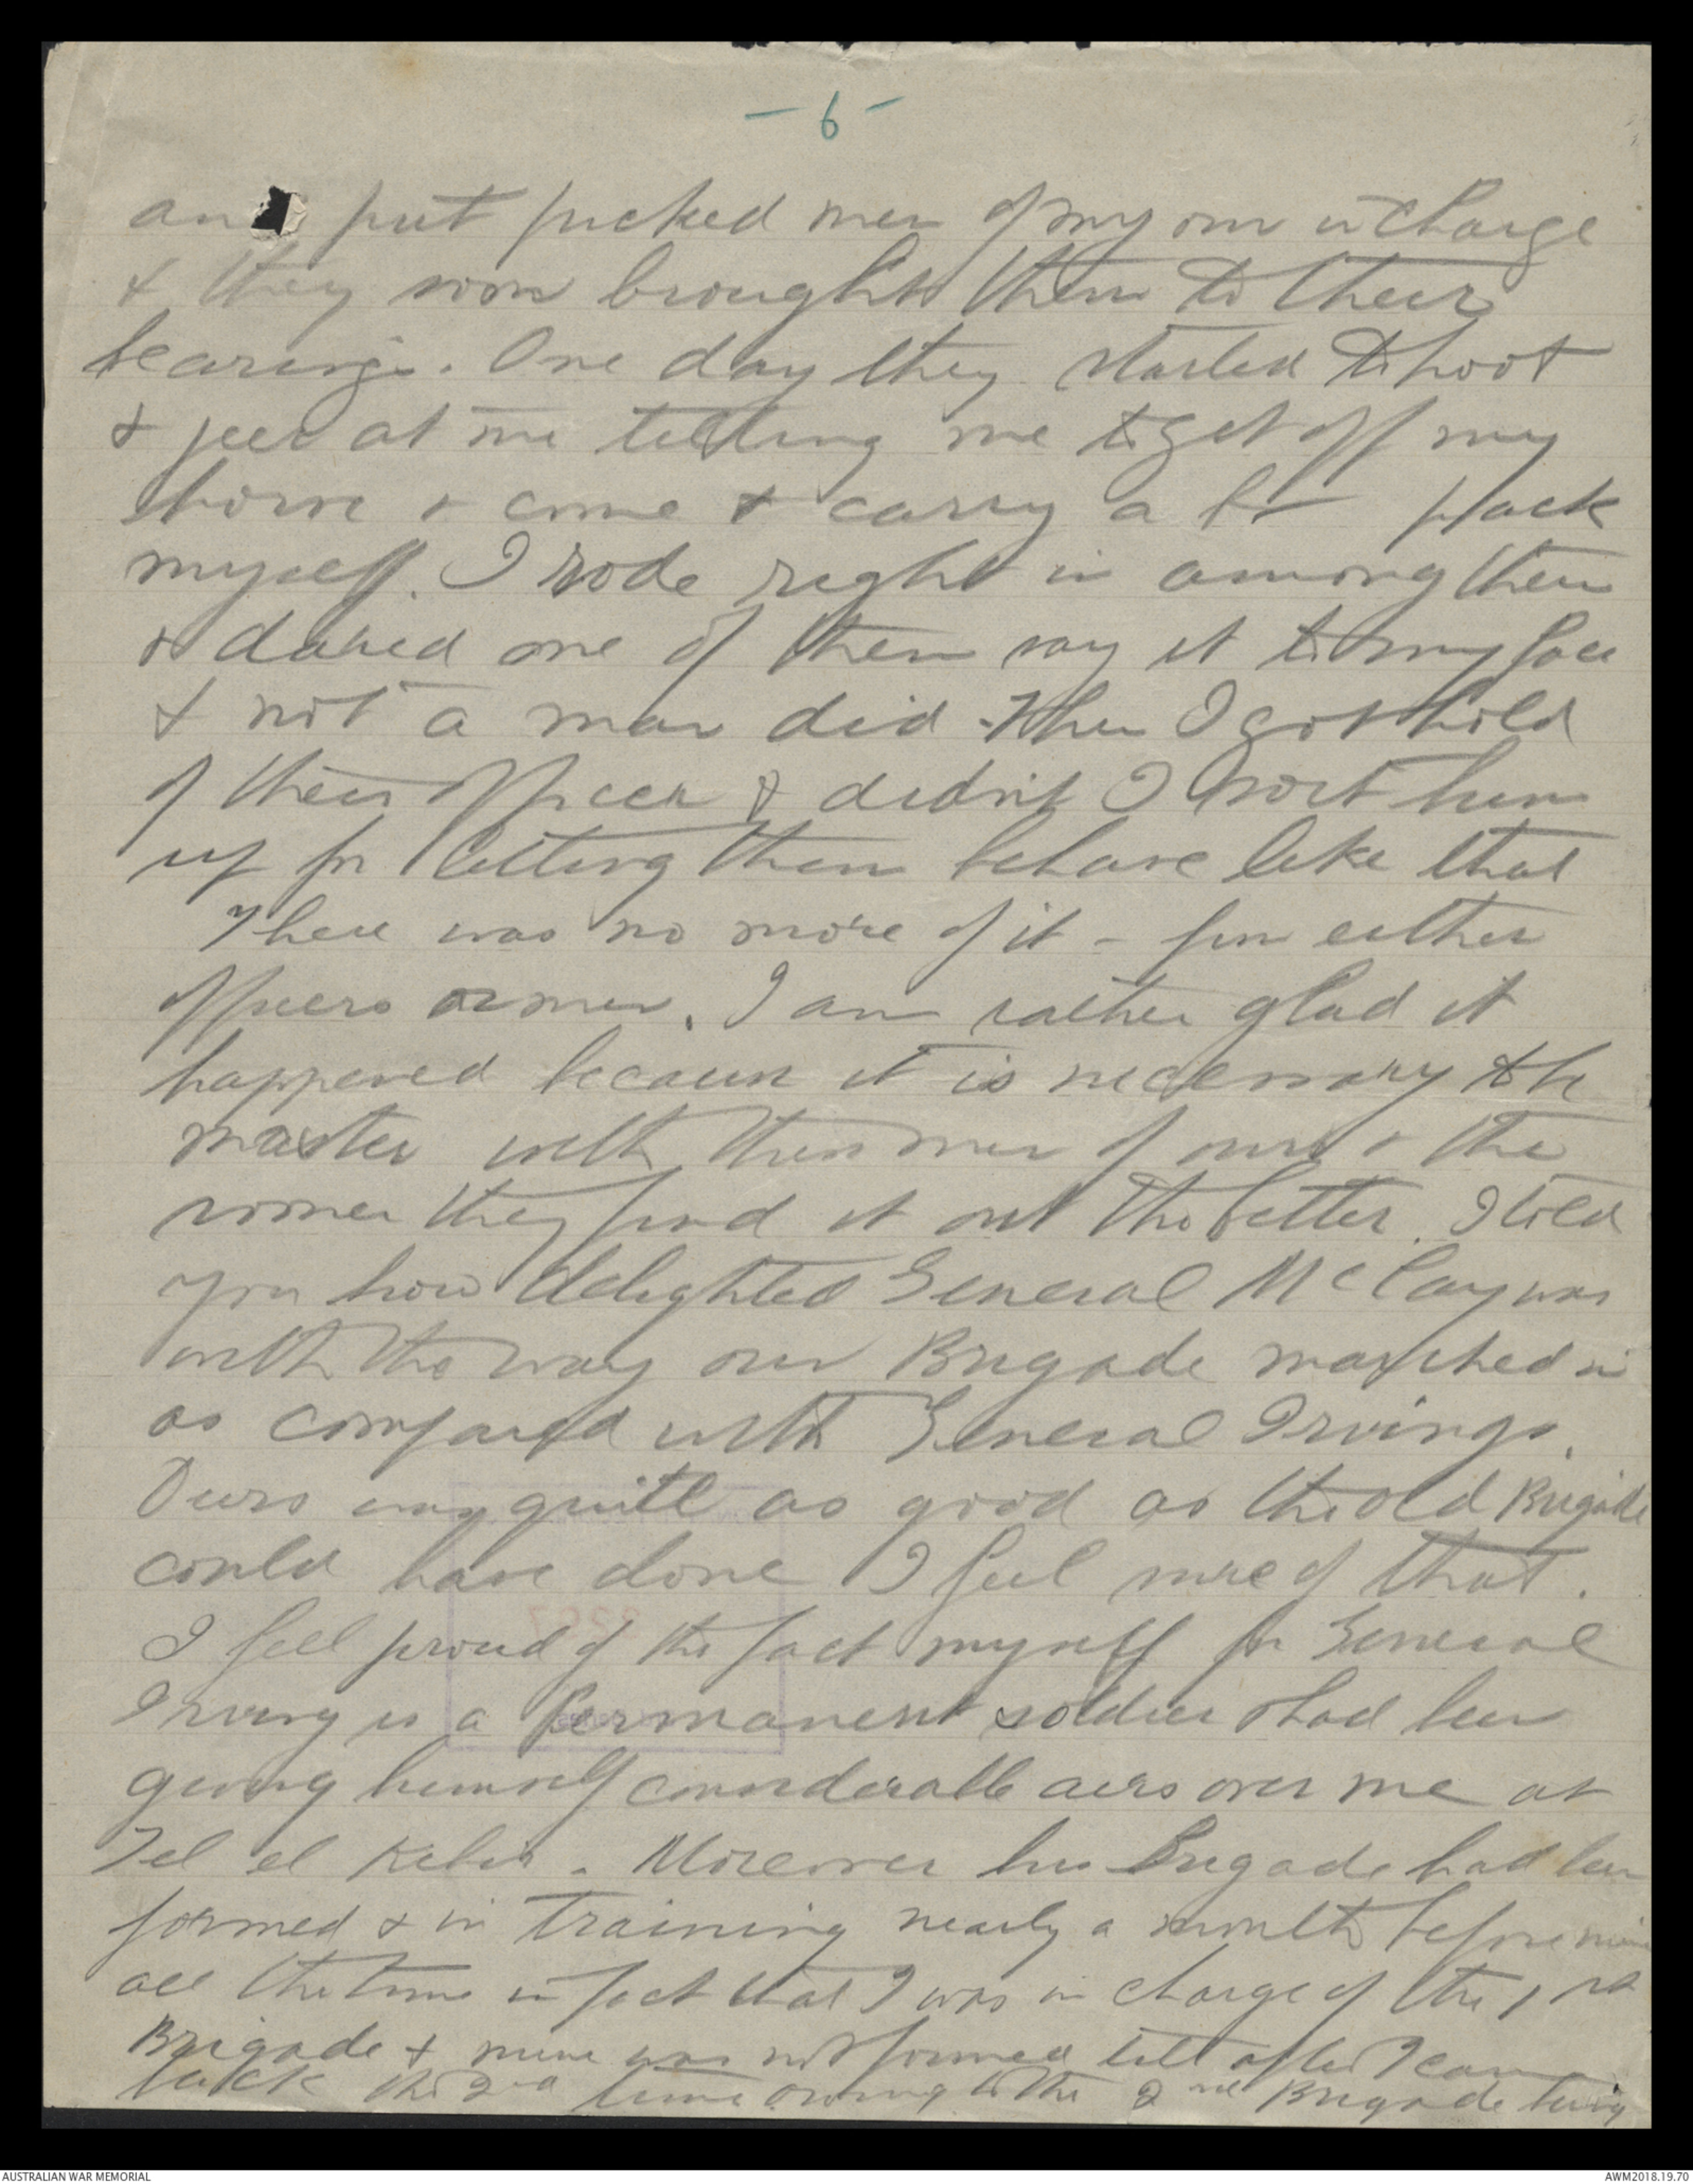 - 6 -
and put picked men of my own in charge
& they soon brought them to their
bearings. One day they started to hoot
& jeer at me telling me to get off my
horse & come & carry a b- pack
myself. I rode right in among them
& dared one of them say it to my face
& not a man did. Then I got hold
of their officer & didn't I roast him
up for letting them behave like that
There was no more of it - from either
officers or men. I am rather glad it
happened because it is necessary to be
master with these men of ours & the
sooner they find it out the better. I told
you how delighted General McCay was
with the way our Brigade marched in
as compared with General Irvings.
Ours was quite as good as the old Brigade
could have done I feel sure of that.
I feel proud of the fact myself for General
Irving is a Permanent soldier & had been
giving himself considerable airs over me at
Tel el Kebir. Moreover his Brigade had been
formed & in training nearly a month before mine
all the time in fact that I was in charge of the 1st
Brigade & mine was not formed till after I came
back the 2nd time owing to the 2nd Brigade being
AUSTRALIAN WAR MEMORIAL
AWM2018.19.70